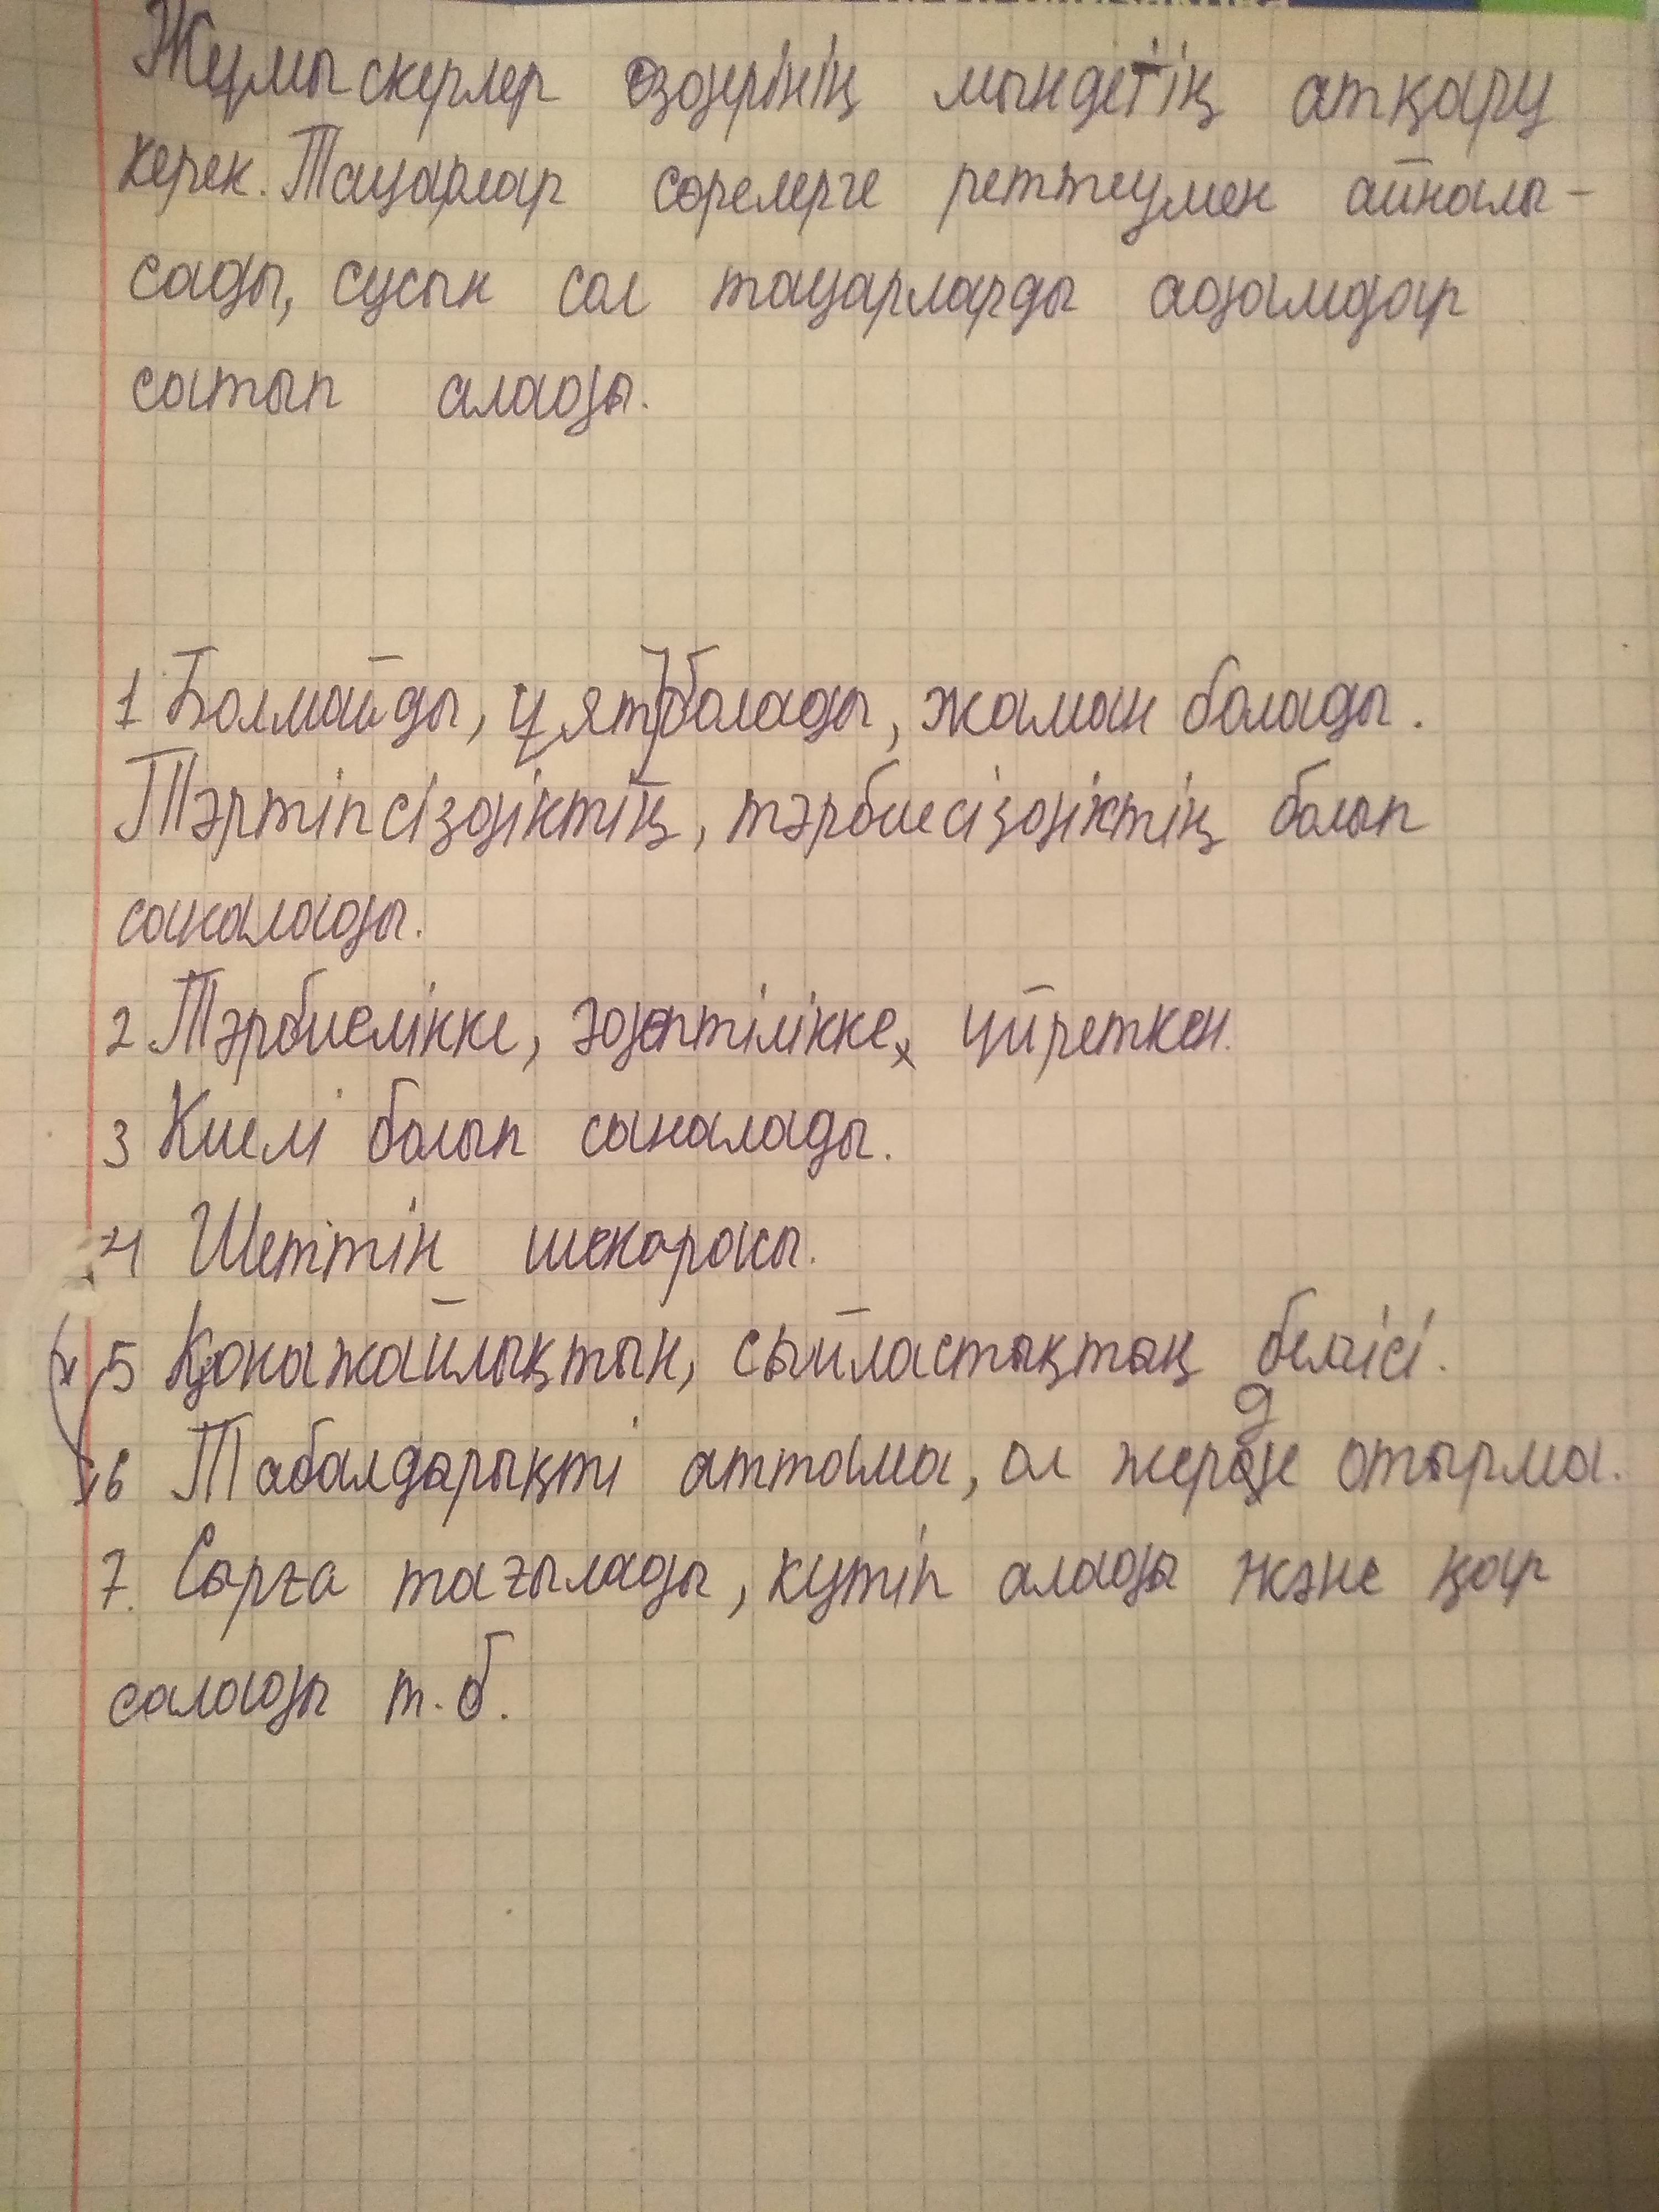 Жұмыскерлер өздерінің мындетің атқару
керек. Тауарлар сөрелерге реттеумен айналы-
сады, сусын сол тауарларды адамдар
сатып алады.
1 Болмайды, ұят болады, жаман болады.
Тәртіпсіздіктің, тәрбиесіздіктің болып
саналады.
2 Тәрбиелікке, әдептілікке, үйреткен.
3 Киелі болып сыналады.
4 Шеттін шекарасы.
5 Қонажайлықтын, сыйластықтың белгісі.
6 Табалдарықті аттама, ол жерде отырма.
7. Сырға тағылады, күтіп алады және қар
салады т.б.